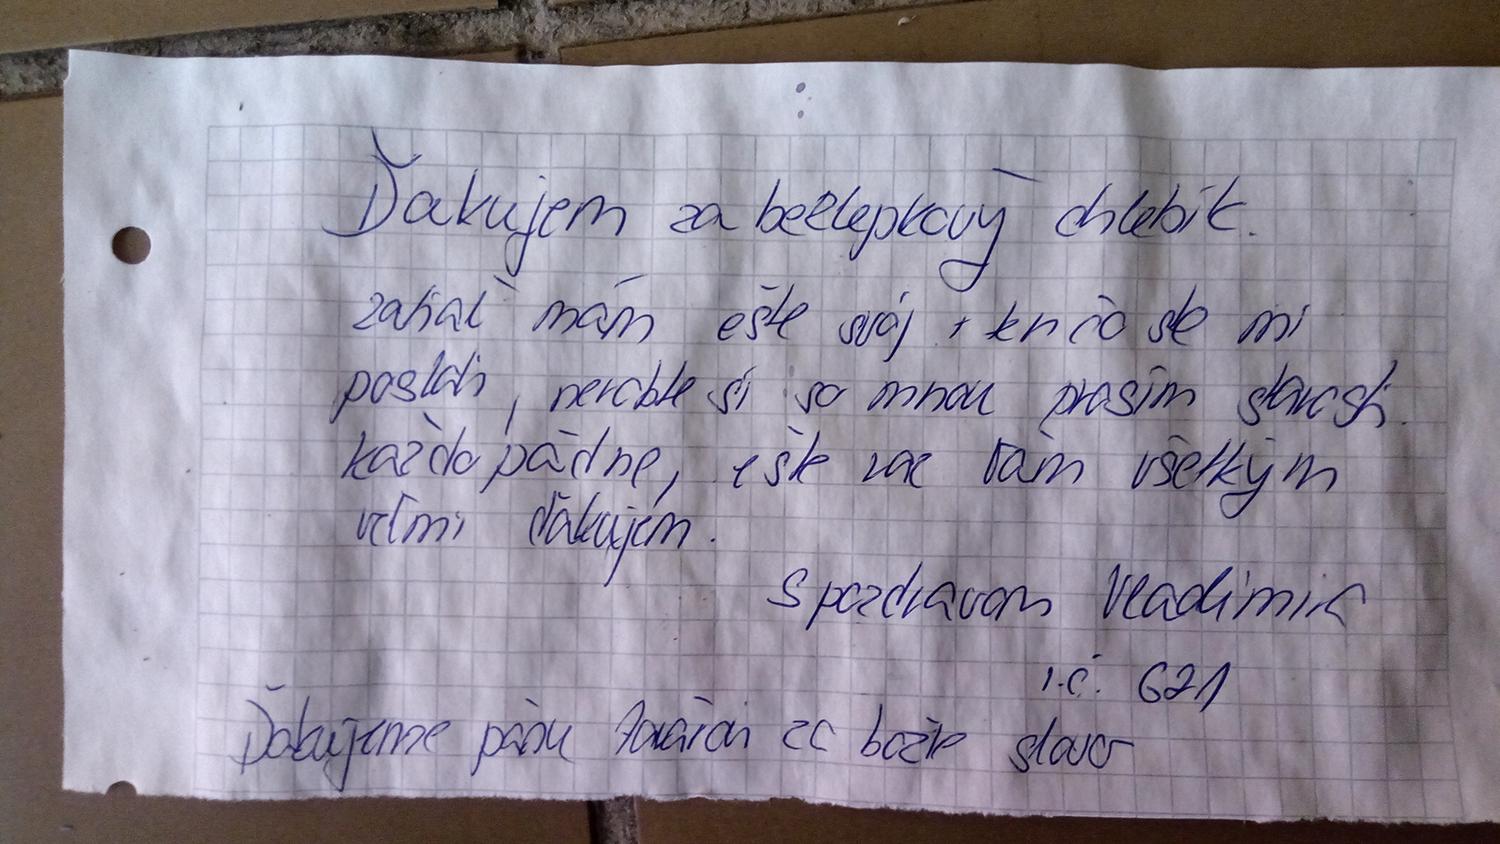 Ďakujem za bezlepkový chlebík.
zatiaľ mám ešte svoj + ten čo ste mi
poslali, nerobte si so mnou prosím starosti.
každopádne, ešte raz Vám všetkým
veľmi ďakujem.
S pozdravom Vladimír
i.č. 621
Ďakujeme pánu za božie slovo